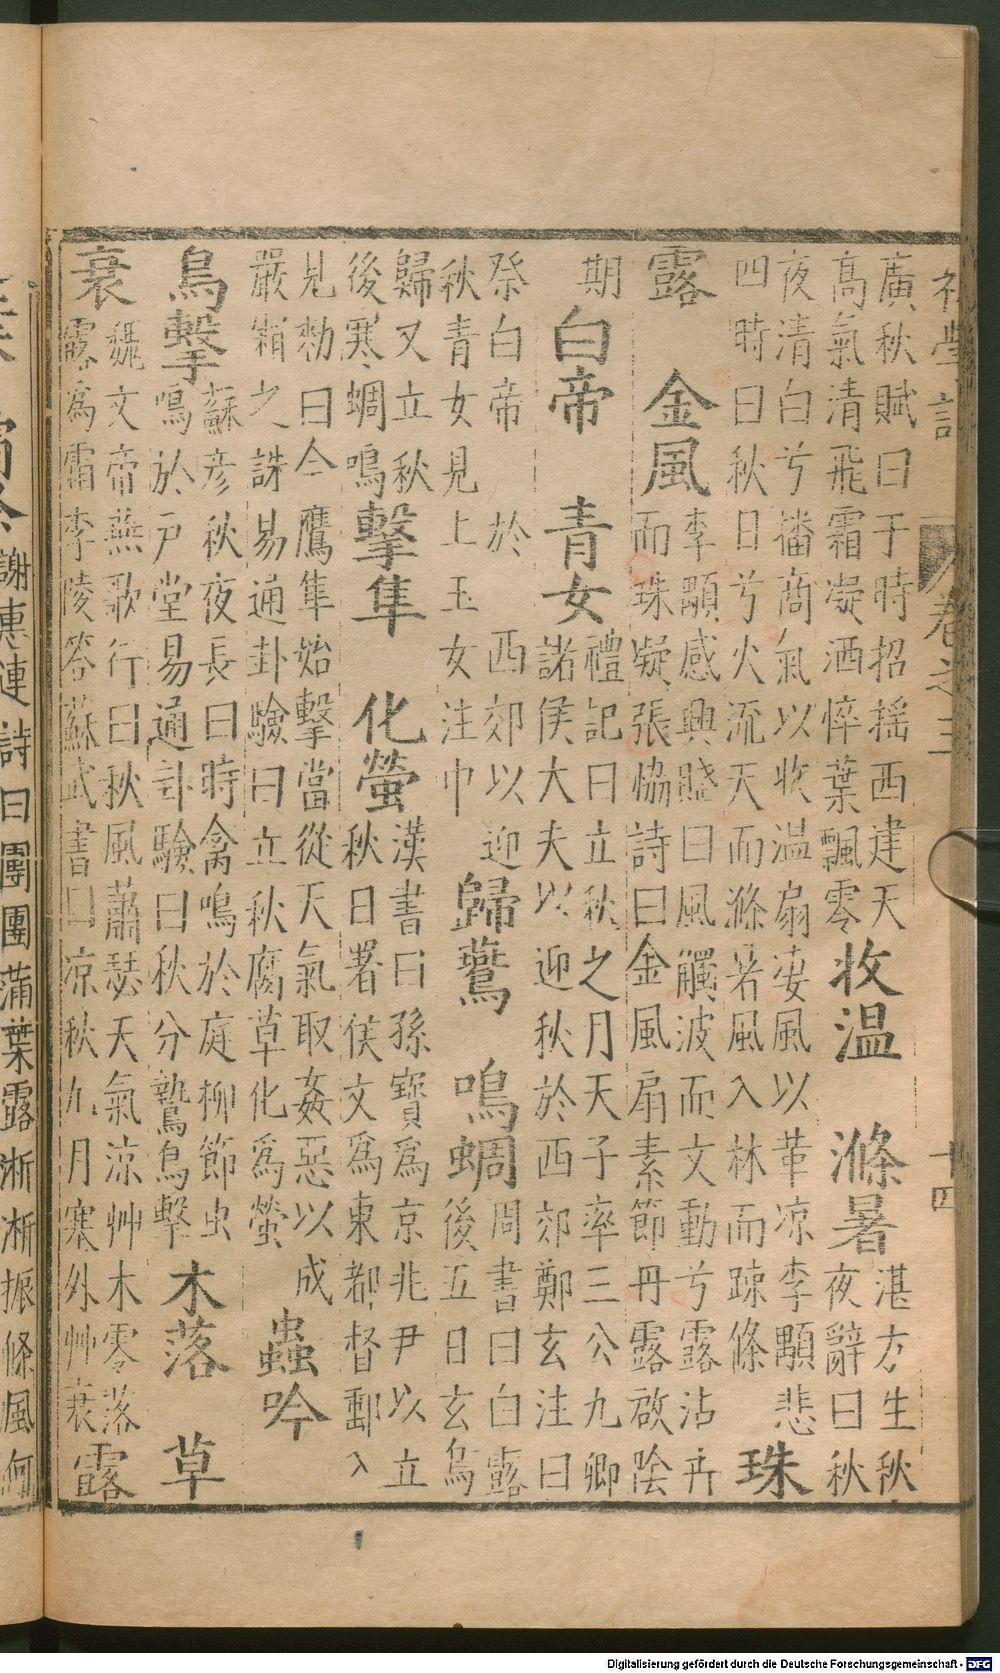 初學記 卷之三 十四
廣秋賦曰于時招搖西建天
高氣清飛霜凝洒悴葉飄零
收温 滌暑
湛方生秋
夜辭曰秋
夜清白兮 商氣以收温扇凄風以革凉李顒悲
四時曰秋日兮火流天而滌暑風入林而踈條
珠
露 金風
李顒感興賦曰風觸波而文動兮露沾卉
而珠凝張恊詩曰金風扇素節丹露啟陰
期
白帝 青女
禮記曰立秋之月天子率三公九卿
諸侯大夫以迎秋於西郊鄭玄注曰
祭白帝 於 西郊以迎
秋青女見上玉女注中
歸鷰 鳴蜩
周書曰白露
後五日玄鳥
歸又立秋
後寒蜩鳴
擊隼 化螢
漢書曰孫寶為京兆尹以立
秋日署侯文為東都督郵入
見勑曰今鷹隼始擊當從天氣取姦惡以成
嚴霜之誅易通卦驗曰立秋腐草化為螢
蟲吟
鳥擊
蘇彦秋夜長曰時禽鳴於庭柳節虫
鳴於戶堂易通卦驗曰秋分鷙鳥擊
木落 草
衰
魏文帝燕歌行曰秋風蕭瑟天氣凉艸木零落
露為霜李陵答蘇武書曰凉秋九月塞外艸衰
露
謝惠連詩曰團團蒲葉露淅淅振條風何
Digitalisierung gefördert durch die Deutsche Forschungsgemeinschaft - DFG